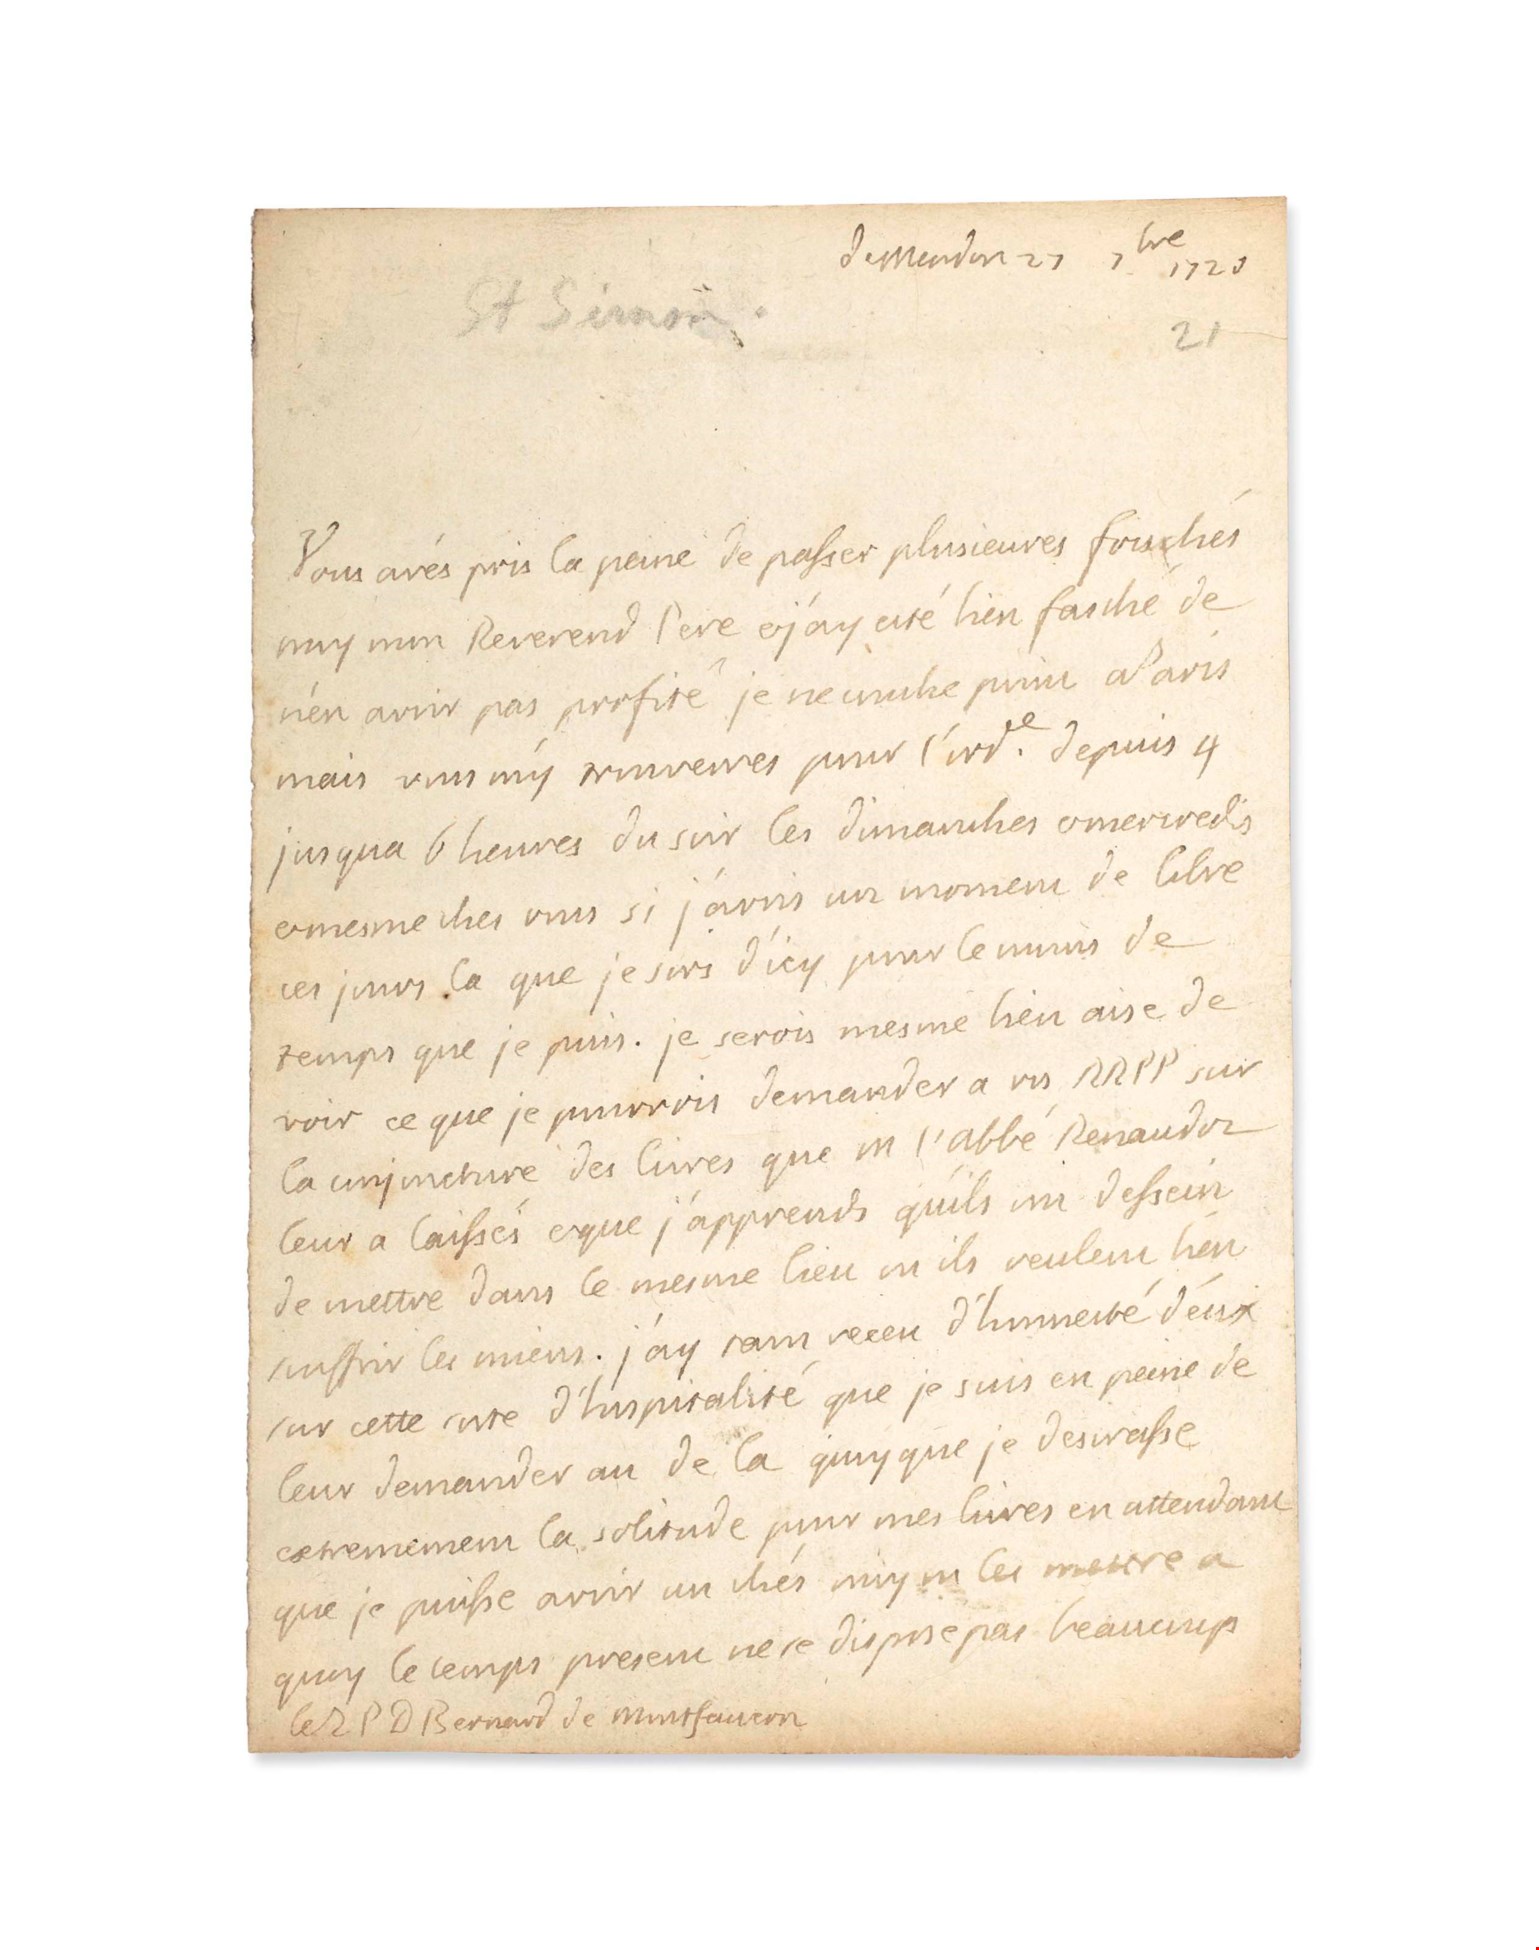 de Meudon 27 7bre 1720
St Simon.
21
Vous avés pris la peine de passer plusieures fois chés
moy mon Reverend Pere et j'ay esté bien fasché de
n'én avoir pas profité je ne couche point a Paris
mais vous m'y trouverres pour l'ord.re depuis 4
jusqua 6 heures du soir les dimanches et mercredis
et mesme ches vous si j'avois un moment de libre
ces jours la que je sors d'icy pour le moins de
temps que je puis. je serois mesme bien aise de
voir ce que je pourrois demander a vos RRPP sur
la conjoncture des livres que M l'abbé Renaudot
leur a laissés et que j'apprends qu'ils ont dessein
de mettre dans le mesme lieu ou ils veulent bien
souffrir les miens. j'ay tant receu d'honnesté d'éux
sur cette sorte d'hospitalité que je suis en peine de
leur demander au de la quoyque je desirasse
extremement la solitude pour mes livres en attendant
que je puisse avoir un chés moy ou les mettre a
quoy le temps present ne se dispose pas beaucoup
le R P D Bernard de Montfaucon